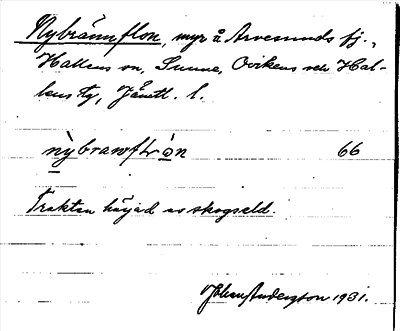 Nybrännflon, myr å Arvesunds fj.,
Hallens sn, Sunne, Ovikens och Hal-
lens tg, Jämtl. l.
nybrawflờn 66
Trakten härjad av skogseld.
Johan Anderzson 1931.